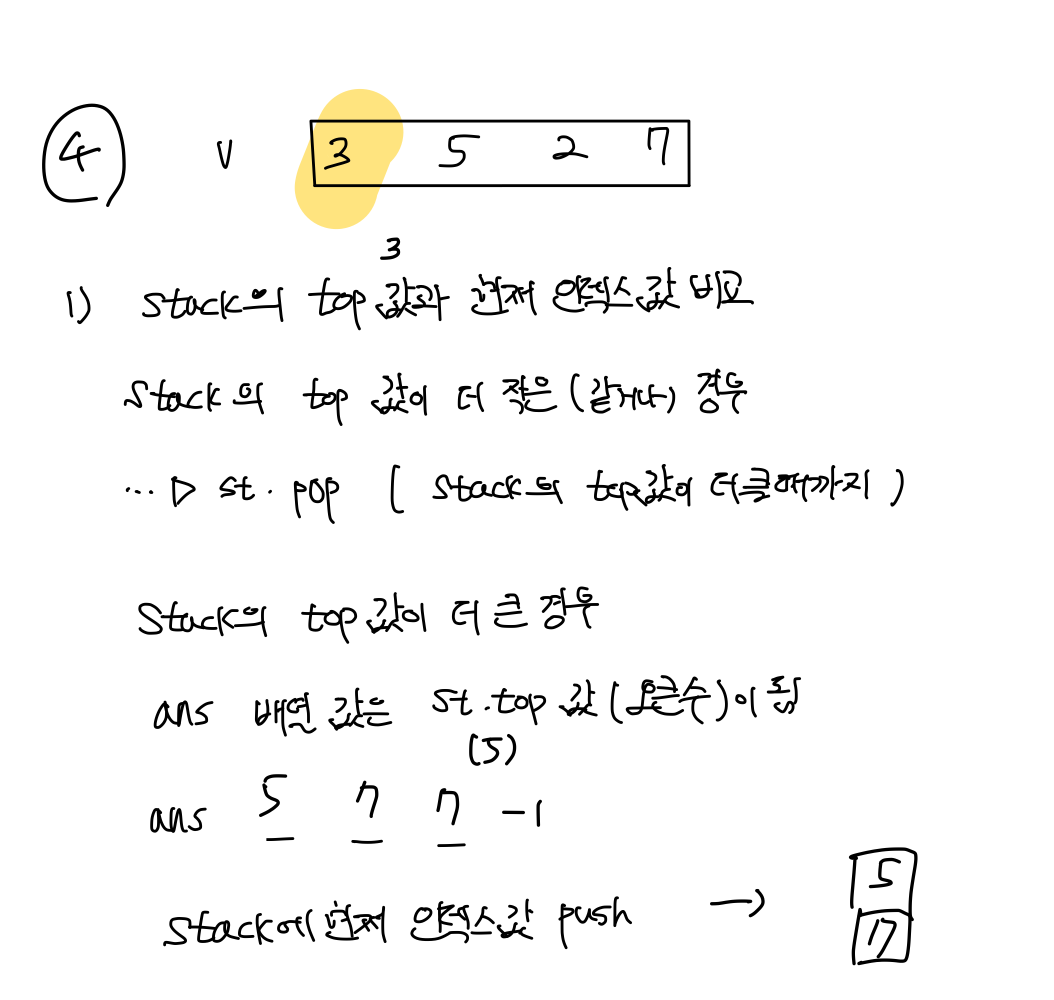 ④ v 3 5 2 7
3
1) stack의 top 값과 현재 인덱스 값 비교
Stack의 top 값이 더 작은 (같거나) 경우
... ▷ st. pop ( stack의 top값이 더클때까지 )
Stack의 top 값이 더 큰 경우
ans 배열 값은 st.top 값 (오큰수) 이 됨
(5)
ans 5 7 7 -1
5
Stack에 현재 인덱스값 push →
7